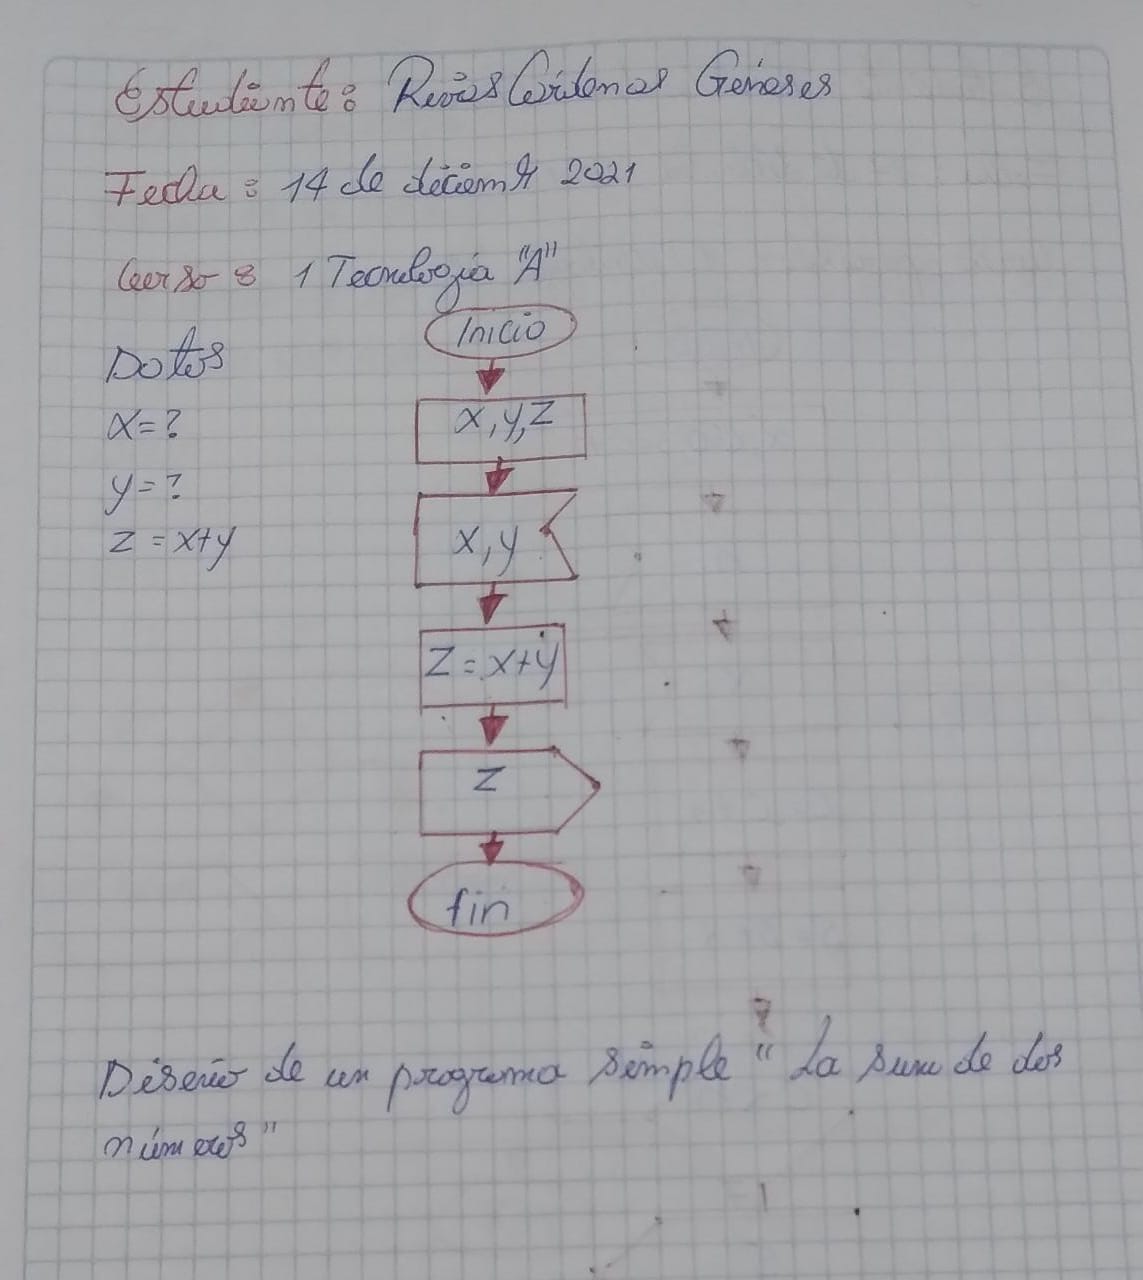 Estudiante: Rivas Cárdenas Géneses
Fecha: 14 de diciembre 2021
Curso: 1 Tecnología "A"
Inicio
Datos
x=?
y=?
z=x+y
x,y,z
x,y
z=x+y
z
fin
Diseño de un programa simple "La suma de dos
números"